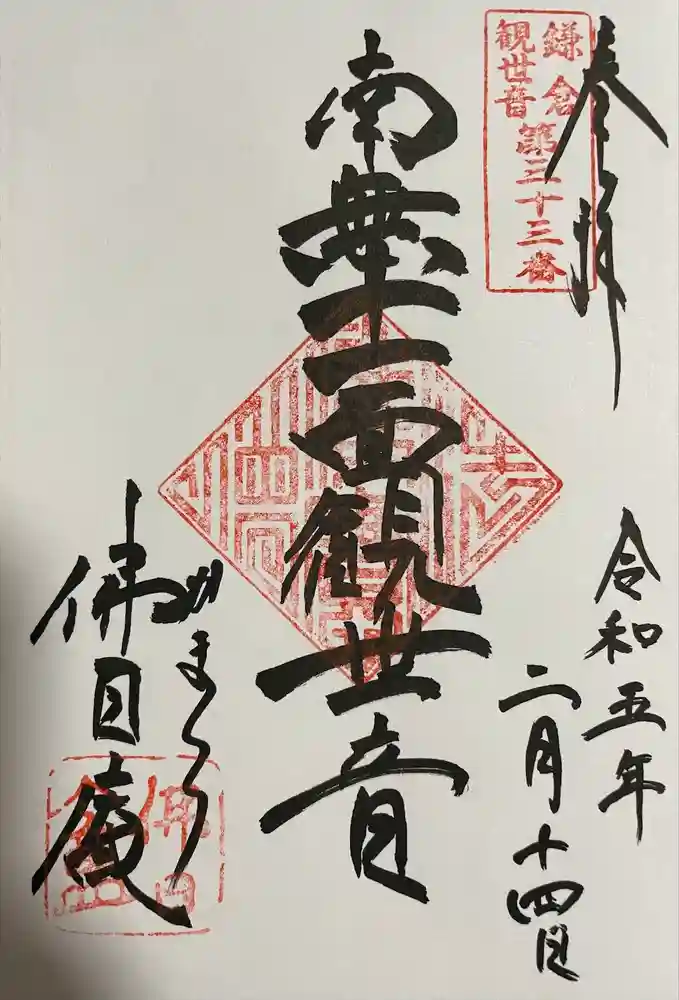 奉拝
鎌倉
観世音
第三十三番
令和五年
二月十四日
南無十一面観世音
かまくら
佛日庵
佛日庵